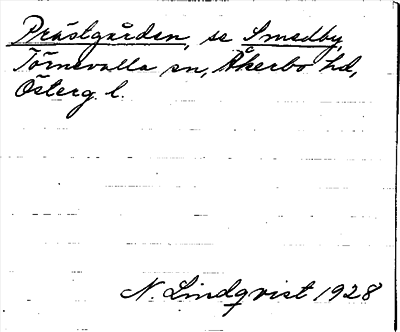 Prästgården, se Smedby,
Törnevalla sn, Åkerbo hd,
Österg. l.
N. Lindqvist 1928